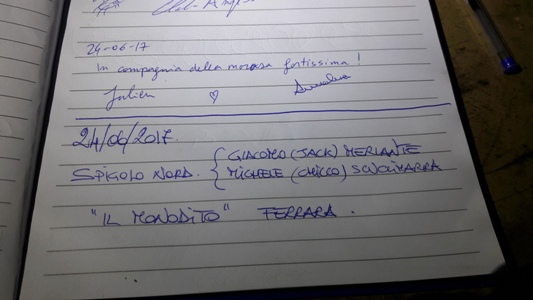 24-06-17
In compagnia della morosa fortissima !
Julien ♡
24/06/2017.
SPIGOLO NORD. { GIACOMO (JACK) MERLANTE
MICHELE (CHICCO)
"IL MONODITO" FERRARA.